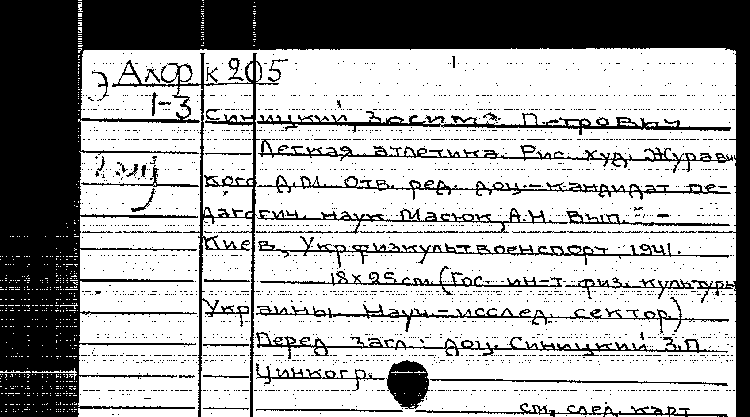 Э Алф к 205
1-3
Синицкий, Зосима Петрович
Легкая атлетика. Рис. худ. Журавс
кого Д.П. Отв. ред. доц.-кандидат пе-
дагогич. наук Масюк, А.Н. Вып. –
Киев, Укрфизкультвоенспорт, 1941.
18х25 см. (Гос. ин-т физ. культуры
Украины. Науч-исслед. сектор)
Перед загл.: доц. Синицкий З.П.
Цинкогр.
см. след. карт